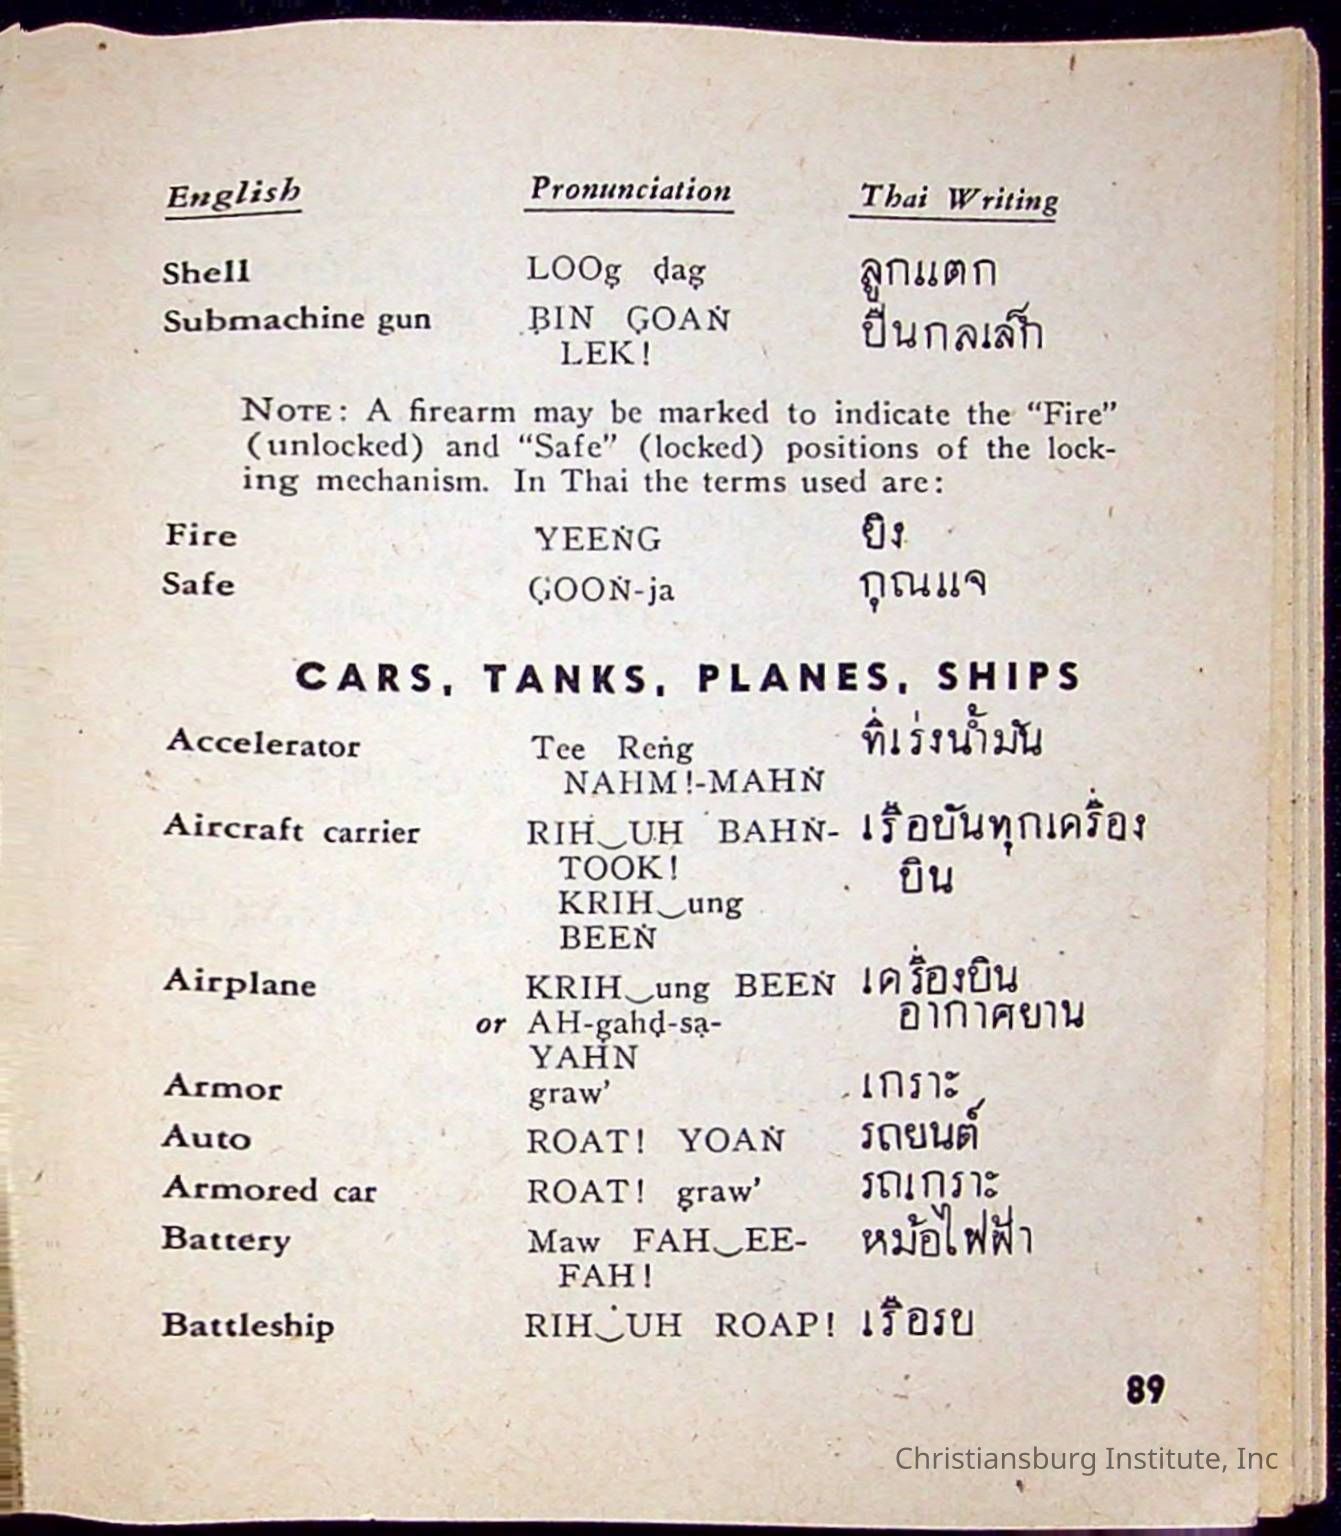 English Pronunciation Thai Writing
Shell LOOg̣ ḍag̣ ลูกแตก
Submachine gun ḄIN G̣OAṄ ปืนกลเล็ก
LEK!
NOTE: A firearm may be marked to indicate the “Fire”
(unlocked) and “Safe” (locked) positions of the lock-
ing mechanism. In Thai the terms used are:
Fire YEEṄG ยิง
Safe G̣OOṄ-ja กุณแจ
CARS, TANKS, PLANES, SHIPS
Accelerator Tee Reṅg ที่เร่งน้ำมัน
NAHM!-MAHṄ
Aircraft carrier RIH‿UH BAHṄ- เรือบันทุกเครื่อง
TOOK! บิน
KRIH‿ung
BEEṄ
Airplane KRIH‿ung BEEṄ เครื่องบิน
or AH-g̣ahḍ-sạ- อากาศยาน
YAHN
Armor graw’ เกราะ
Auto ROAT! YOAṄ รถยนต์
Armored car ROAT! g̣raw’ รถเกราะ
Battery Maw FAH‿EE- หม้อไฟฟ้า
FAH!
Battleship RIH‿UH ROAP! เรือรบ
89
Christiansburg Institute, Inc